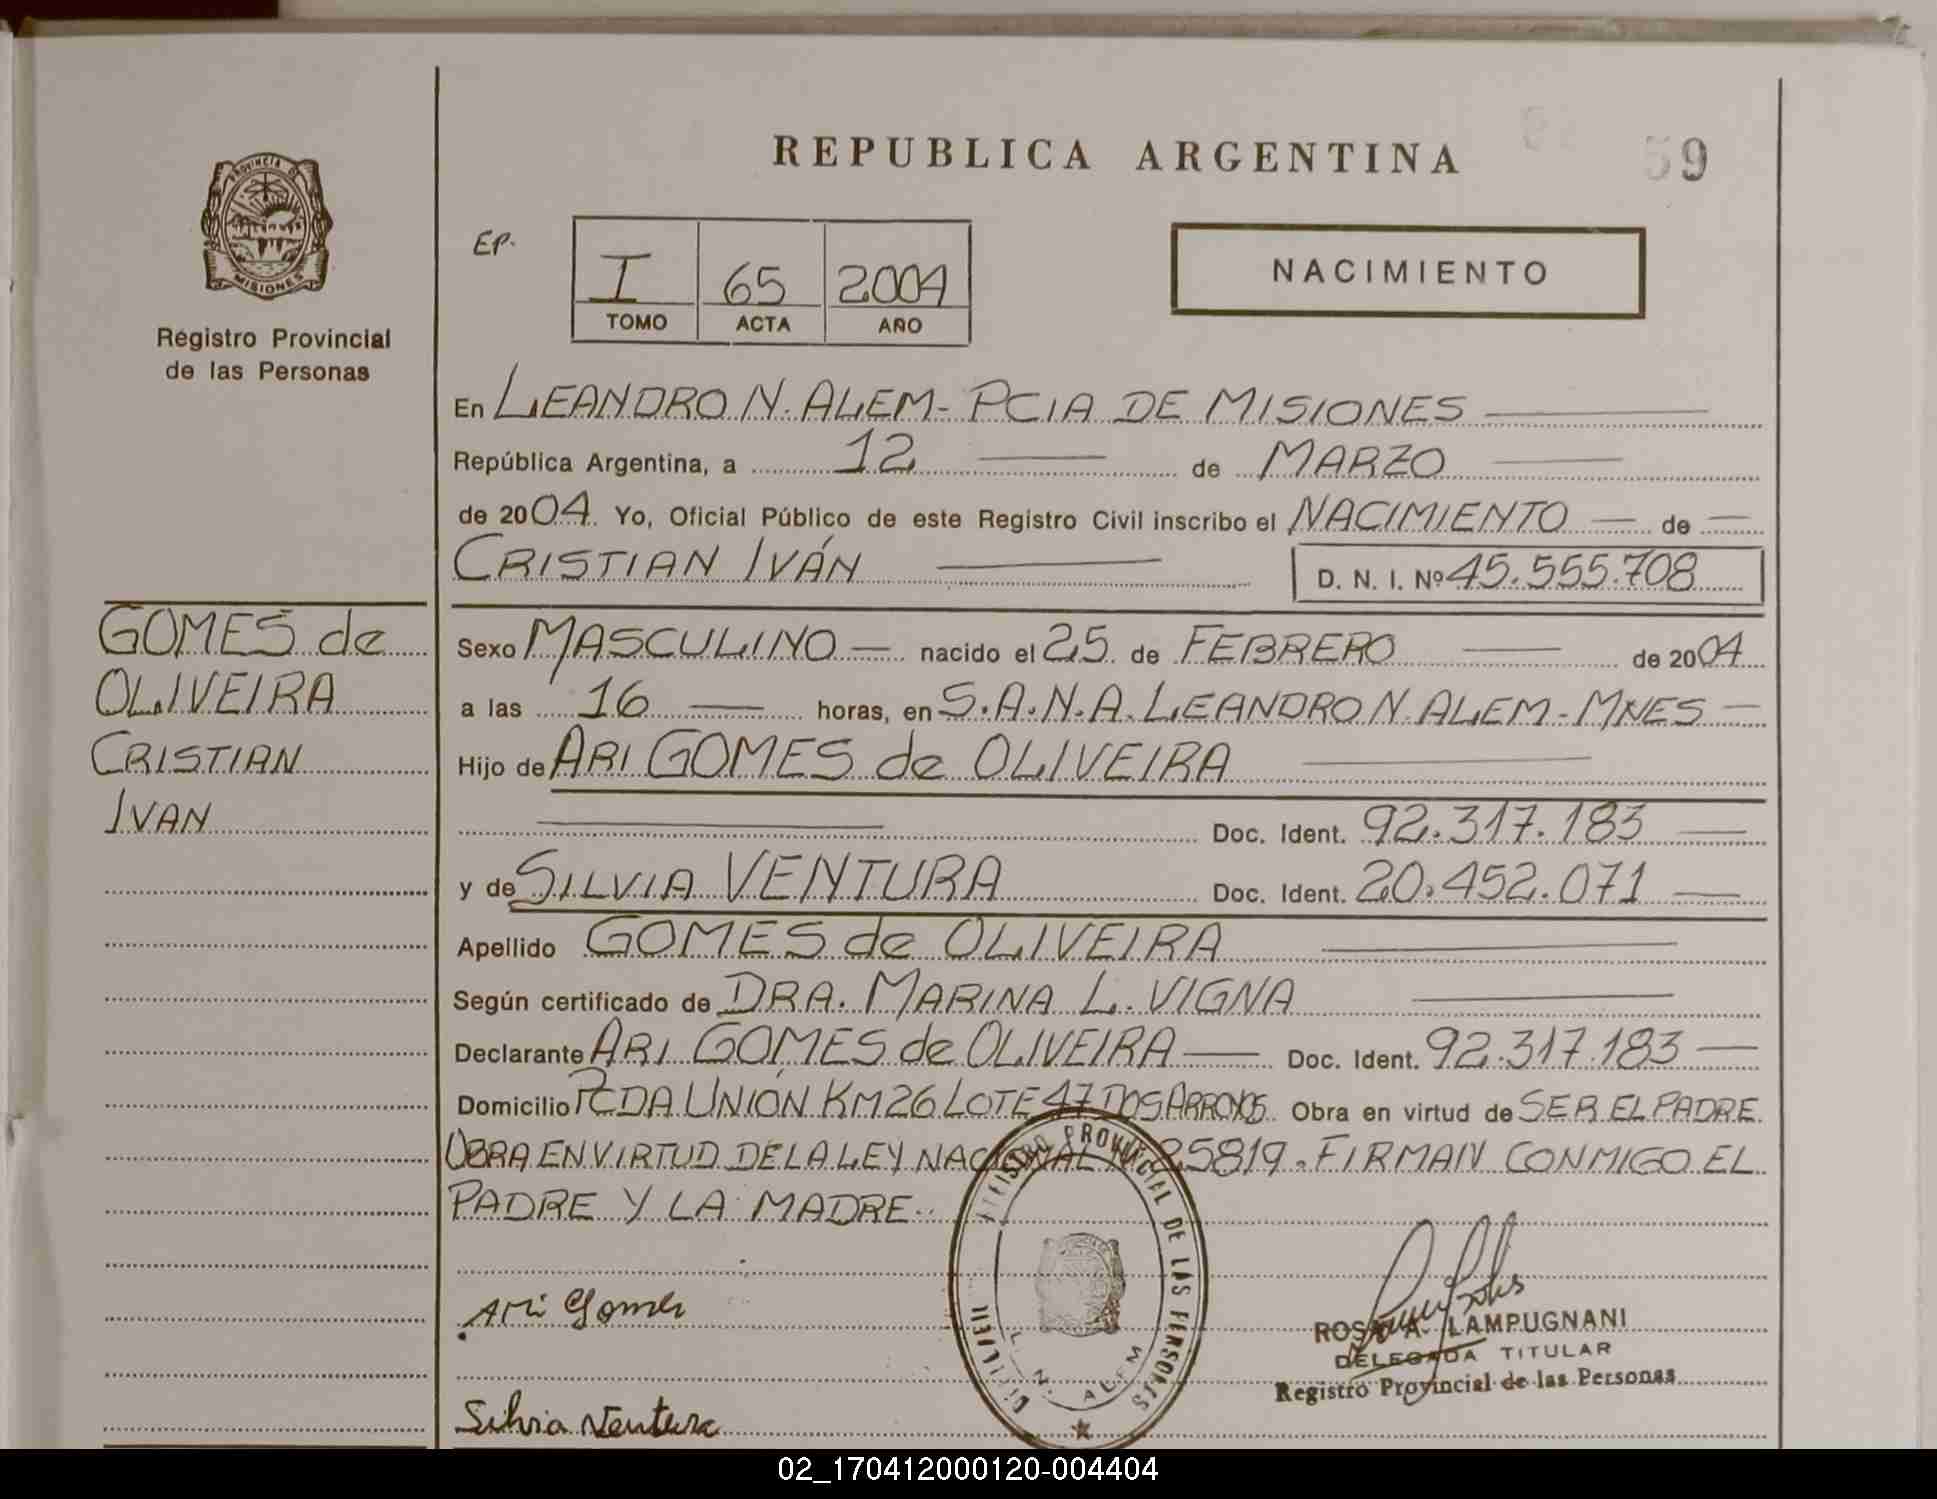 REPUBLICA ARGENTINA
59
PROVINCIA DE
MISIONES
Registro Provincial
de las Personas
EP.
I 65 2004
TOMO ACTA AÑO
NACIMIENTO
En LEANDRO N. ALEM - PCIA DE MISIONES
República Argentina, a 12 de MARZO
de 2004. Yo, Oficial Público de este Registro Civil inscribo el NACIMIENTO de
CRISTIAN IVÁN D. N. I. Nº 45.555.708
GOMES de
OLIVEIRA
CRISTIAN
IVAN
Sexo MASCULINO nacido el 25 de FEBRERO de 2004
a las 16 horas, en S.A.N.A. LEANDRO N. ALEM - MNES
Hijo de ARI GOMES de OLIVEIRA
Doc. Ident. 92.317.183
y de SILVIA VENTURA Doc. Ident. 20.452.071
Apellido GOMES de OLIVEIRA
Según certificado de DRA. MARINA L. VIGNA
Declarante ARI GOMES de OLIVEIRA Doc. Ident. 92.317.183
Domicilio PCDA UNIÓN KM 26 LOTE 47 DOS ARROYOS Obra en virtud de SER EL PADRE.
OBRA EN VIRTUD DE LA LEY NACIONAL Nº 25819. FIRMAN CONMIGO EL
PADRE Y LA MADRE.
REGISTRO PROVINCIAL DE LAS PERSONAS
L. N. ALEM
Ari Gomes
ROSA A. LAMPUGNANI
DELEGADA TITULAR
Registro Provincial de las Personas
Silvia Ventura
02_170412000120-004404